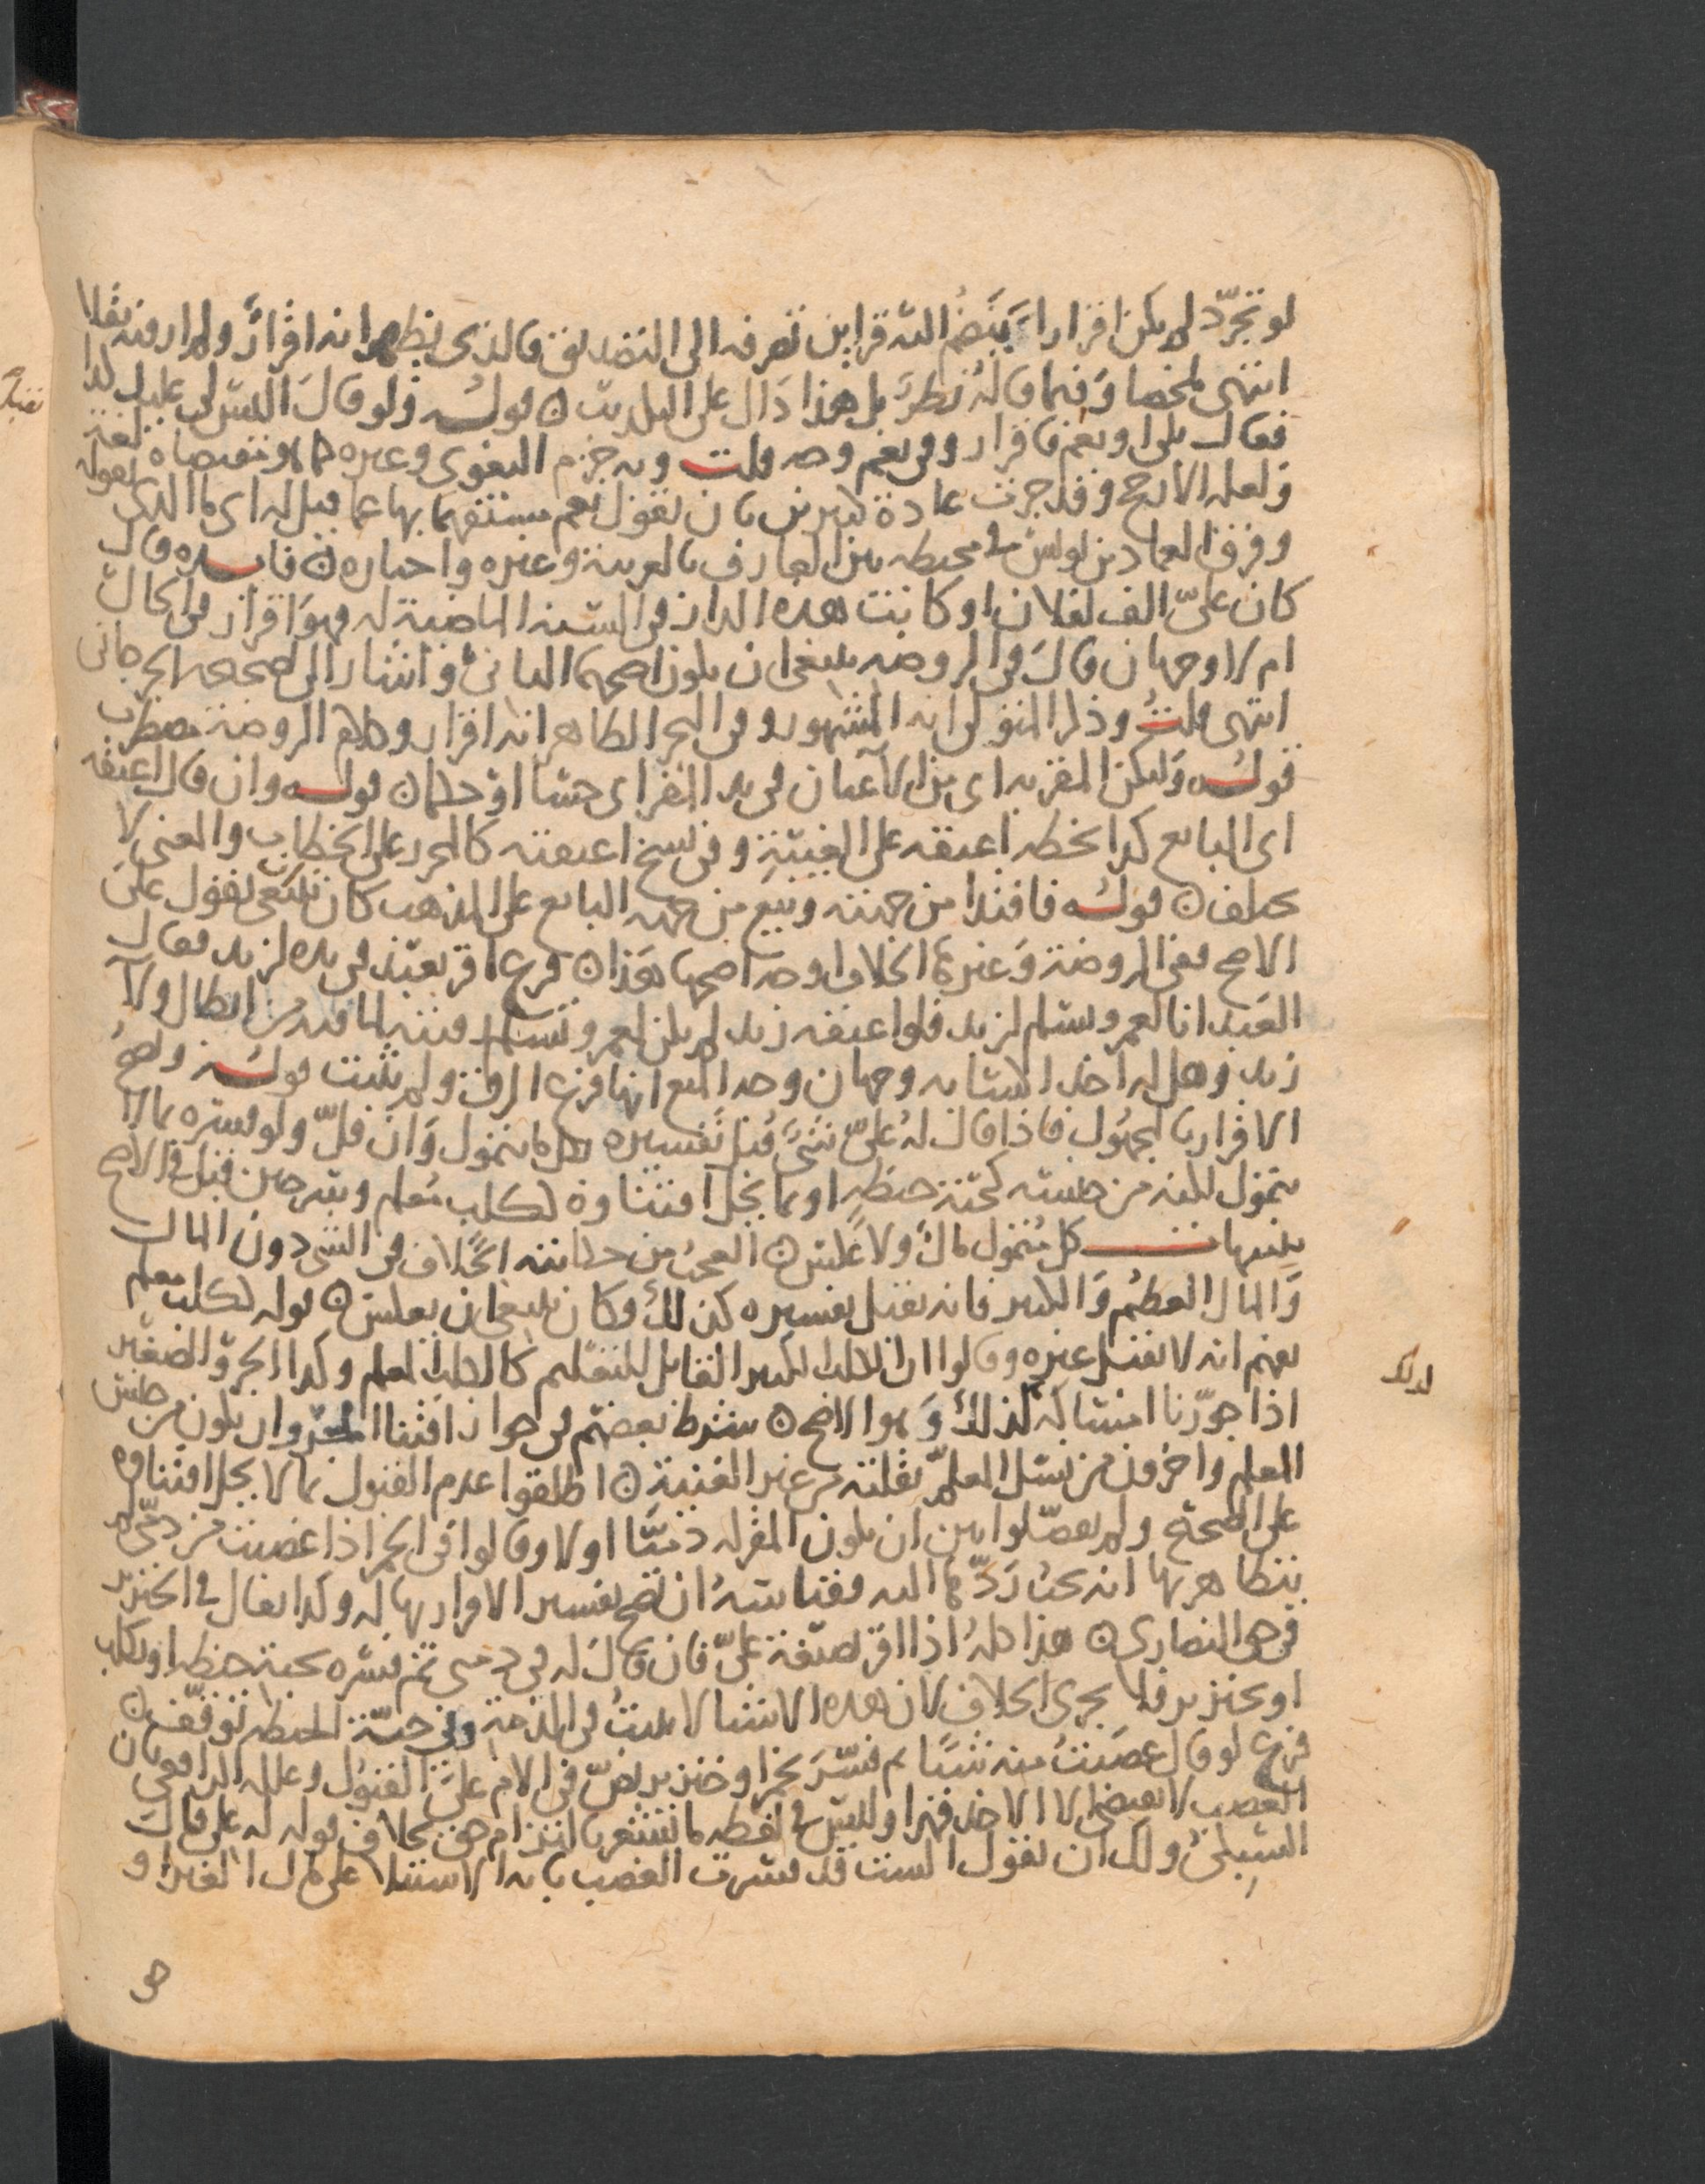 لو تجرّد لم يكن اقرارا ينضم اليه قراين تصرفه الى التصديق فالذي يظهر انه اقرار ولم ار فيه نقلا
انتهى ملخصا وفيما قاله نظر بل هذا دال على التكذيب ن قوله ولو قال اليس لي عليك كذا
فقال بلى او نعم فاقرار وفي نعم وجه قلت وبه جزم البغوي وغيره
ولعله الارجح وقد جرت عادة كثيرين بان يقول نعم مستفهما بها عما قيل له اي ما الذي تقوله
وفرق العماد بن يونس في محيطه بين العارف بالعربية وغيره واختاره ن فايده قال
كان عليّ الف لفلان او كانت هذه الدار في السنة الماضية له فهو اقرار في الحال
ام لا وجهان قال في الروضه ينبغي ان يكون اصحهما الثاني واشار الى تصحيحه الجرجاني
انتهى قلت وذكر المتولي انه المشهور وفي البحر الظاهر انه اقرار وكلام الروضة مضطرب
قوله وليكن المقر به اي من الاعيان في يد المقر اي حسا او حكما ن قوله وان قال اعتقه
اي البايع كذا بخطه اعتقه على الغيبة وفي نسخ اعتقته كالمحرر على الخطاب والمعنى لا
يختلف ن قوله فافتدا من جهته وبيع من جهه البايع على المذهب كان ينبغي يقول على
الاصح ففي الروضة وغيرها الخلاف اوجه اصحها هذا ن فرع اقر بعبد في يده لزيد فقال
العبد انا لعمرو سلم لزيد فلو اعتقه زيد لم يكن لعمرو تسلمه لما فيه من ابطال ولا
زيد وهل له اخذ اكسابه وجهان وجه المنع انها فرع الرق ولم يثبت قوله ويصح
الاقرار بالمجهول فاذا قال له عليّ شيء قبل تفسيره بكل ما يتمول وان قلّ ولو فسره بما لا
يتمول لكنه من جنسه كحبّة حنطه او بما يحل اقتناوه ككلب معلم وسرجين قبل في الاصح
تنبيهات كل متمول مال ولا عكس ن العجب من حكايته الخلاف في الشي دون المال
والمال العظيم والكثير فانه يقبل تفسيره كذلك وكان ينبغي ان يعكس ن قوله ككلب معلم
يفهم انه لا يقبل غيره وقالوا ان الكلب الكبير القابل للتعليم كالكلب المعلم وكذا الجرو الصغير
اذا جوّزنا امساكه لذلك وهو الاصح ن شرط بعضهم في جواز اقتنا الجرو ان يكون من جنس
المعلم واخرون من نسل المعلم نقلته من غير الغنية ن اطلقوا عدم القبول بما لا يحل اقتناوه
على الصحيح ولم يفصّلوا بين ان يكون المقر له ذميّا او لا وقالوا في الخمر اذا غصبت من ذمّي لم
يتظاهر بها انه يجب ردّها اليه فقياسه ان يصح تفسير الاقرار بها له وكذا يقال في الخنزير
في حق النصارى ن هذا كله اذا اقر بصيغة عليّ فان قال له في ذمتي ثم فسره بحبة حنطه او بكلب
او بخنزير فلا يجرى الخلاف لان هذه الاشيا لا تثبت في الذمة وفي حبّة الحنطه توقّف ن
فرع لو قال غصبت منه شيّا ثم فسّر بخمر او خنزير نصّ في الام على القبول وعلله الرافعي بان
الغصب لا يقتضي الا الاخذ قهرا وليس في لفظه ما يشعر بالتزام حق بخلاف قوله له علي قال
السبكي ولك ان تقول الست قد فسرت الغصب بانه الاستيلا على مال الغير او
لذلك
حق